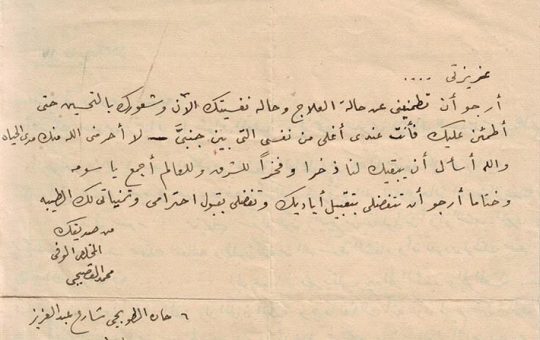 عزيزتى ....
أرجو أن تطمنينى عن حالة العلاج وحالة نفسيتك الآن وشعورك بالتحسين حتى
أطمئن عليك فأنت عندى أغلى من نفسى التى بين جنبىَّ - لا أحرمنى الله منك مدى الحياه
والله أسأل أن يبقيك لنا ذخرا وفخراً للشرق وللعالم أجمع يا سومه
وختاما أرجو أن تتفضلى بتقبيل أياديك وتفضلى بقبول احترامى وتمنياتى لك الطيبه
من صديقك
المخلص الوفى
محمد القصبجى
٦ حارة الطوبجى شارع عبد العزيز